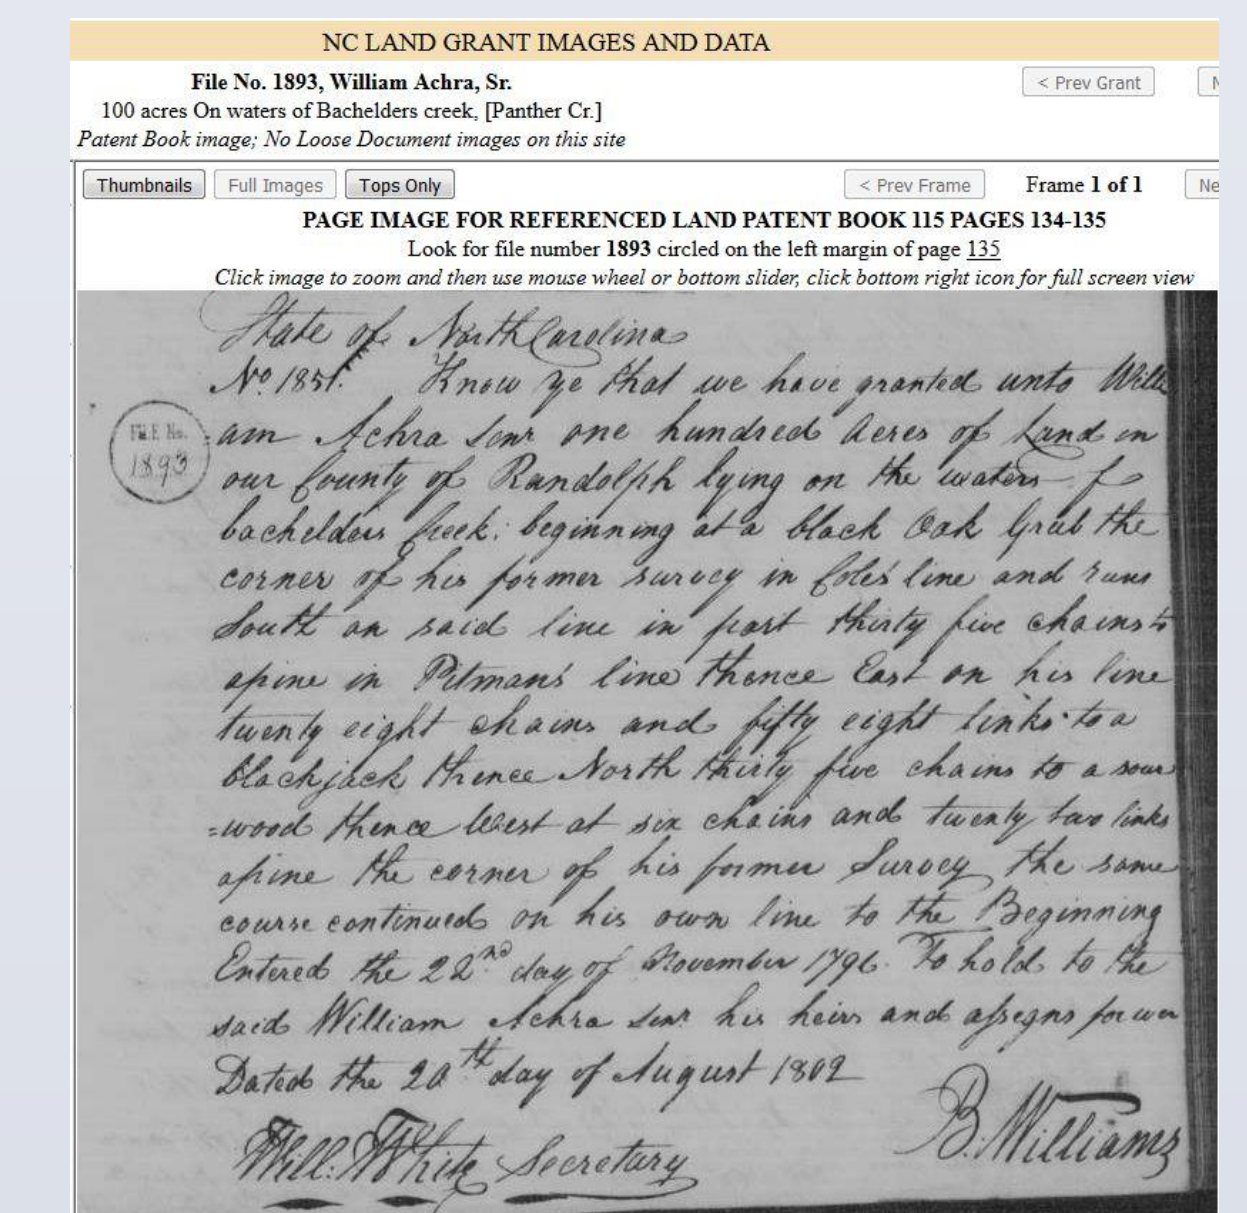 NC LAND GRANT IMAGES AND DATA
File No. 1893, William Achra, Sr.
< Prev Grant
N
100 acres On waters of Bachelders creek, [Panther Cr.]
Patent Book image; No Loose Document images on this site
Thumbnails Full Images Tops Only < Prev Frame Frame 1 of 1 Ne
PAGE IMAGE FOR REFERENCED LAND PATENT BOOK 115 PAGES 134-135
Look for file number 1893 circled on the left margin of page 135
Click image to zoom and then use mouse wheel or bottom slider, click bottom right icon for full screen view
State of North Carolina
No. 1851. Know ye that we have granted unto Willi
FILE No.
1893
am Achra Senr one hundred Acres of Land in
our County of Randolph lying on the waters of
bachelders Creek. beginning at a black Oak Grub the
corner of his former survey in Coles line and runs
South on said line in part thirty five chains to
apine in Pitman's line thence East on his line
twenty eight chains and fifty eight links to a
blackjack thence North thirty five chains to a sour
=wood thence West at six chains and twenty two links
apine the corner of his former Survey the same
course continued on his own line to the Beginning
Entered the 22nd day of November 1796. To hold to the
said William Achra Senr his heirs and assegns forever
Dated the 20th day of August 1802
B. Williams
Will. White Secretary